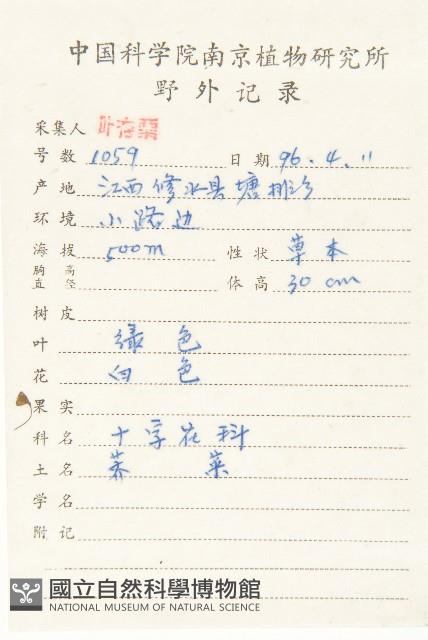 中国科学院南京植物研究所
野外记录
采集人 叶存粟
号数 1059 日期 96.4.11
产地 江西修水县塘排乡
环境 小路边
海拔 500m 性状 草本
胸高直径 体高 30cm
树皮
叶 绿色
花 白色
果实
科名 十字花科
土名 荠菜
学名
附记
國立自然科學博物館
NATIONAL MUSEUM OF NATURAL SCIENCE